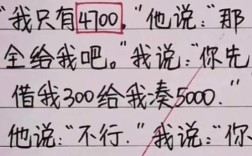 “我只有4700，”他说：“那
全给我吧。”我说：“你先
借我300给我凑5000.”
他说：“不行.”我说：“你